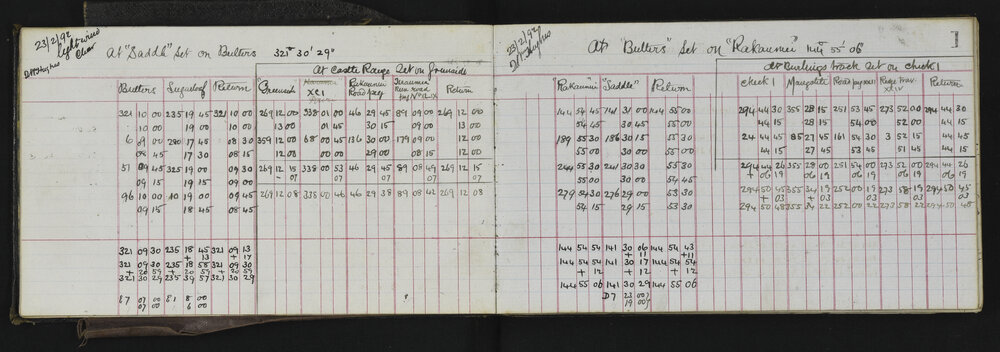 23/2/92
Light wind
Clear
At "Saddle" Set on Butters 321° 30' 29"
At Castle Range Set on Greenside
Butters Return "Greensd XCI Rakaunui Road peg Return
321 10 00 235 19 45 321 10 00 269 12 00 338 01 00 46 29 45 89 09 00 269 12 00
10 00 19 00 10 00 13 00 01 45 30 15 09 00 13 00
6 09 00 280 17 45 08 30 359 12 00 68 00 45 136 30 00 179 09 00 12 00
08 45 17 30 08 15 12 00 00 00 29 00 08 15 12 00
51 09 45 325 19 00 09 30 269 12 15 338 00 53 46 29 45 89 08 49 269 12 15
09 15 19 15 09 00 -07 07 07 07
96 10 00 10 19 00 09 45 269 12 08 338 00 46 46 29 38 89 08 42 269 12 08
09 15 18 45 08 45
321 09 30 235 18 45 321 09 13
+ 13 + 17
321 09 30 235 18 58 321 09 30
+ 20 59 + 20 59 + 20 59
321 30 29 235 39 57 321 30 29
87 07 00 81 8 00
07 00 6 00
23/2/92
At "Butters" Set on "Rakaunui" 144 55' 06
1
At Bushings track Set on Check 1
"Rakaunui" "Saddle" Return Check 1 Mangatiti Road peg Ridge Trav. XXIV Return
144 54 45 141 31 00 144 55 00 294 44 30 355 28 15 251 53 45 273 52 00 294 44 30
54 45 30 45 55 00 44 15 28 15 54 00 52 00 44 15
189 55 30 186 30 15 53 30 24 44 45 85 27 45 161 54 30 3 52 15 44 45
55 00 30 00 54 30 44 15 27 45 53 45 51 45 44 15
53 30 294 44 26 355 28 00 251 54 00 273 52 00 294 44 26
55 00 30 00 54 45 + 06 19 06 19 06 19 06 19 06 19
53 30 294 50 45 355 34 19 252 00 19 273 58 19 294 50 45
54 15 29 15 53 30 + 03 03 03 03 03
294 50 48 355 34 22 252 00 22 273 58 22 294 50 48
144 54 54 141 30 06 144 54 43
+ 11 + 11
144 54 54 141 30 17 144 54 54
+ 12 + 12 + 12
144 55 06 141 30 29 144 55 06
D7 23 00?
19 00?